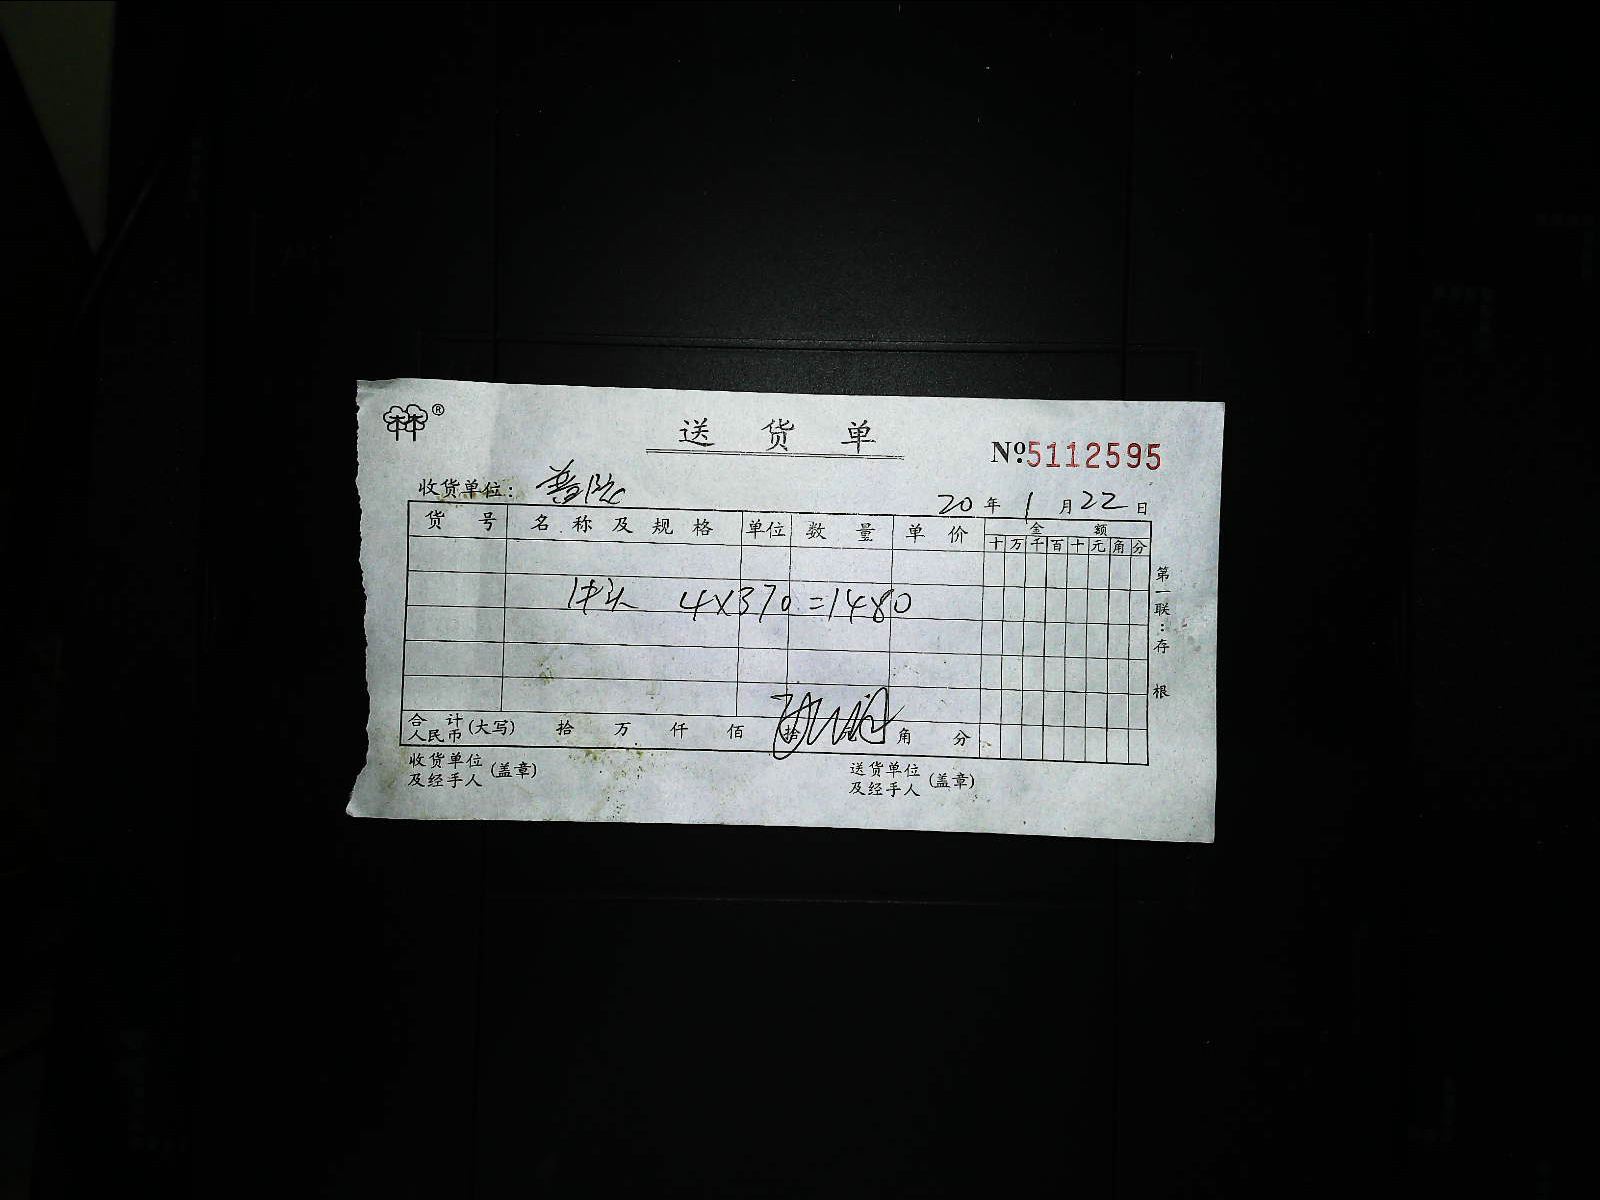 ®
送货单
№5112595
收货单位：普陀
20年1月22日
货号 名称及规格 单位 数量 单价 金额
十万千百十元角分
4X370=1480
合计
人民币(大写) 拾 万 仟 佰 拾 角 分
收货单位
及经手人(盖章)
送货单位
及经手人(盖章)
第一联：存根